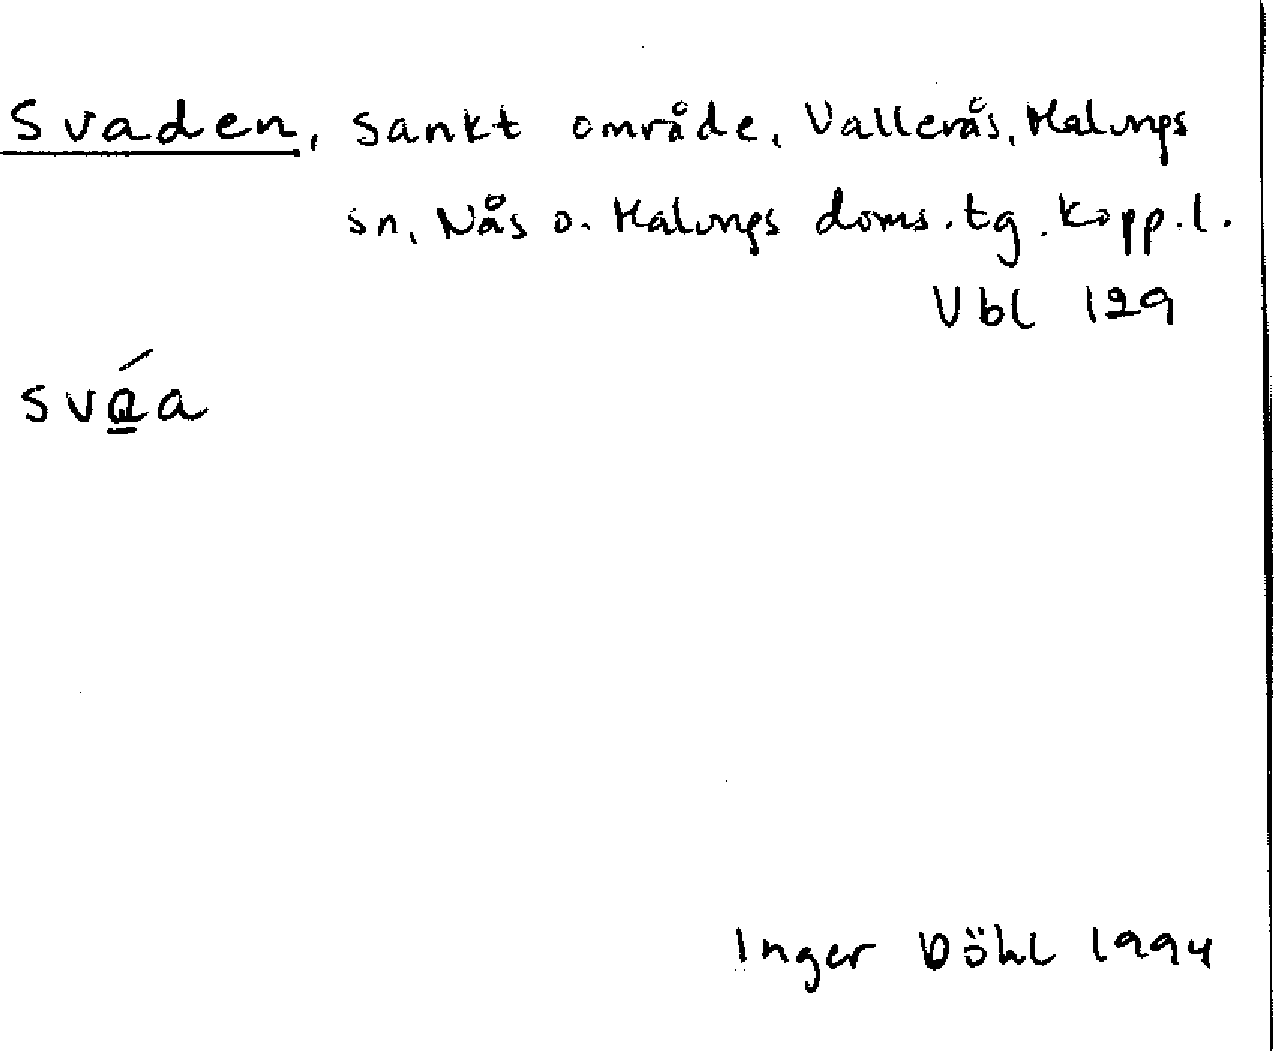 Svaden, Sankt område, Vallerås, Malungs
sn, Nås o. Malungs doms.tg. Kopp.l.
Vbl 129
svá̲a
Inger Döhl 1994